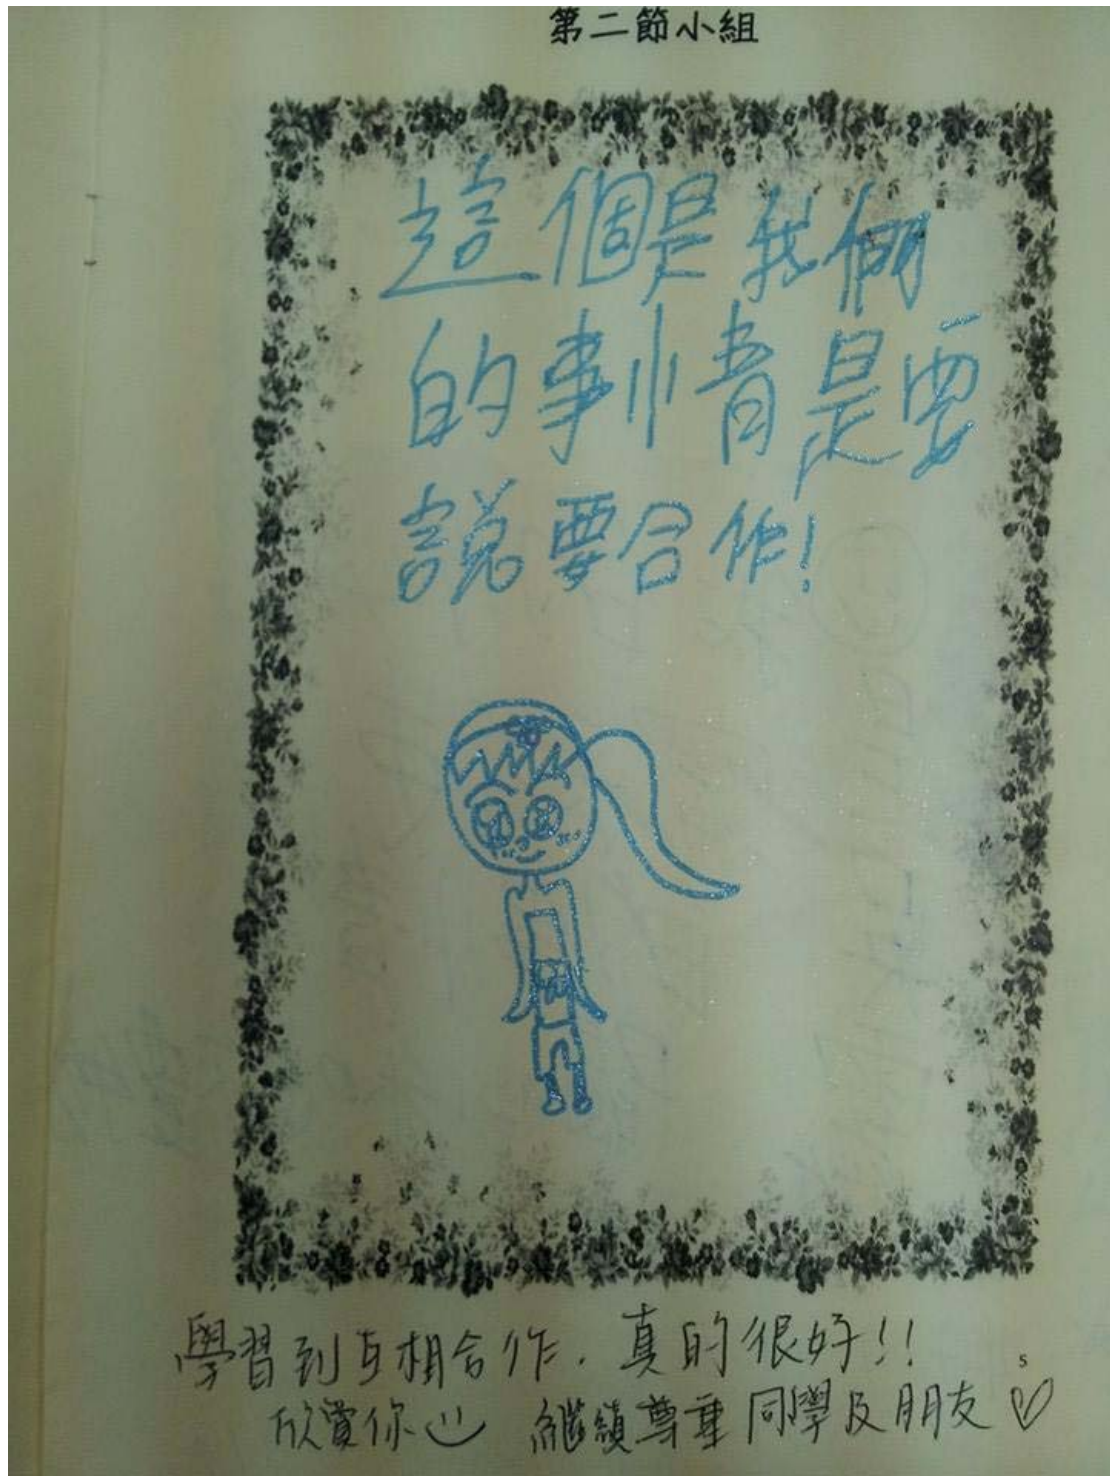 第二節小組
這個是我們
的事情是要
說要合作!
學習到互相合作. 真的很好!!
欣賞你 繼續尊重同學及朋友
5